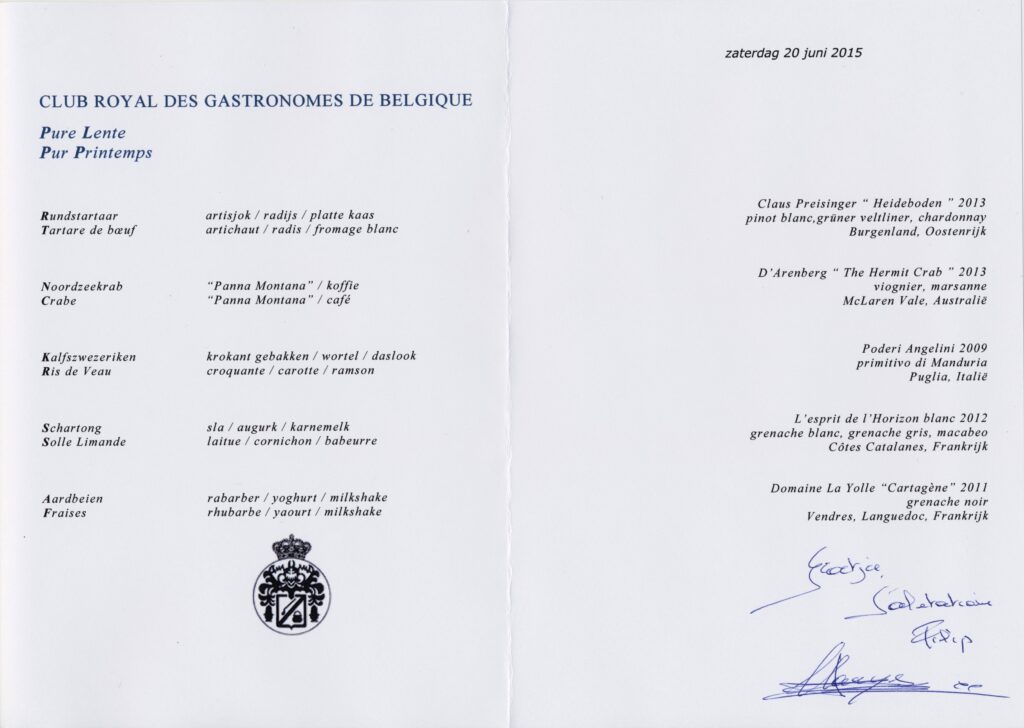 CLUB ROYAL DES GASTRONOMES DE BELGIQUE
Pure Lente
Pur Printemps
Rundstartaar artisjok / radijs / platte kaas
Tartare de bœuf artichaut / radis / fromage blanc
Noordzeekrab “Panna Montana” / koffie
Crabe “Panna Montana” / café
Kalfszwezeriken krokant gebakken / wortel / daslook
Ris de Veau croquante / carotte / ramson
Schartong sla / augurk / karnemelk
Solle Limande laitue / cornichon / babeurre
Aardbeien rabarber / yoghurt / milkshake
Fraises rhubarbe / yaourt / milkshake
zaterdag 20 juni 2015
Claus Preisinger “ Heideboden ” 2013
pinot blanc,grüner veltliner, chardonnay
Burgenland, Oostenrijk
D’Arenberg “ The Hermit Crab ” 2013
viognier, marsanne
McLaren Vale, Australië
Poderi Angelini 2009
primitivo di Manduria
Puglia, Italië
L’esprit de l’Horizon blanc 2012
grenache blanc, grenache gris, macabeo
Côtes Catalanes, Frankrijk
Domaine La Yolle “Cartagène” 2011
grenache noir
Vendres, Languedoc, Frankrijk
Filip